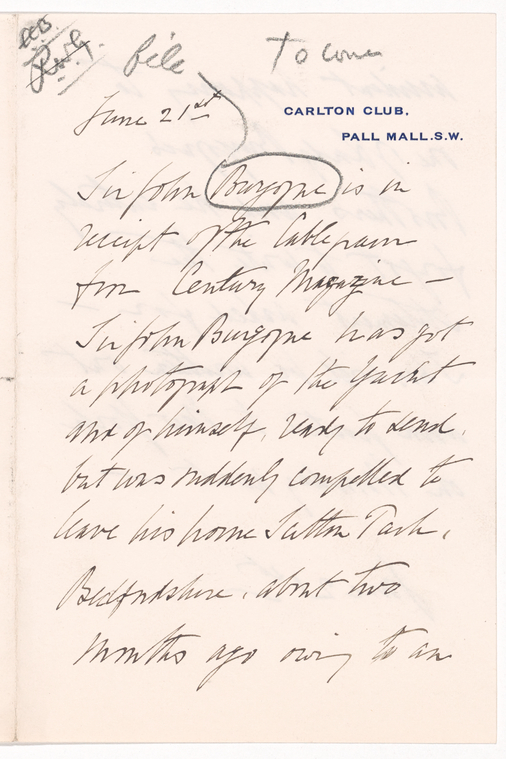 file
To come
June 21st
CARLTON CLUB,
PALL MALL.S.W.
Sir John Burgoyne is in
receipt of the Cablegram
from Century Magazine –
Sir John Burgoyne has got
a photograph of the Yacht
and of himself, ready to send,
but was suddenly compelled to
leave his home Sutton Park,
Bedfordshire, about two
months ago owing to an